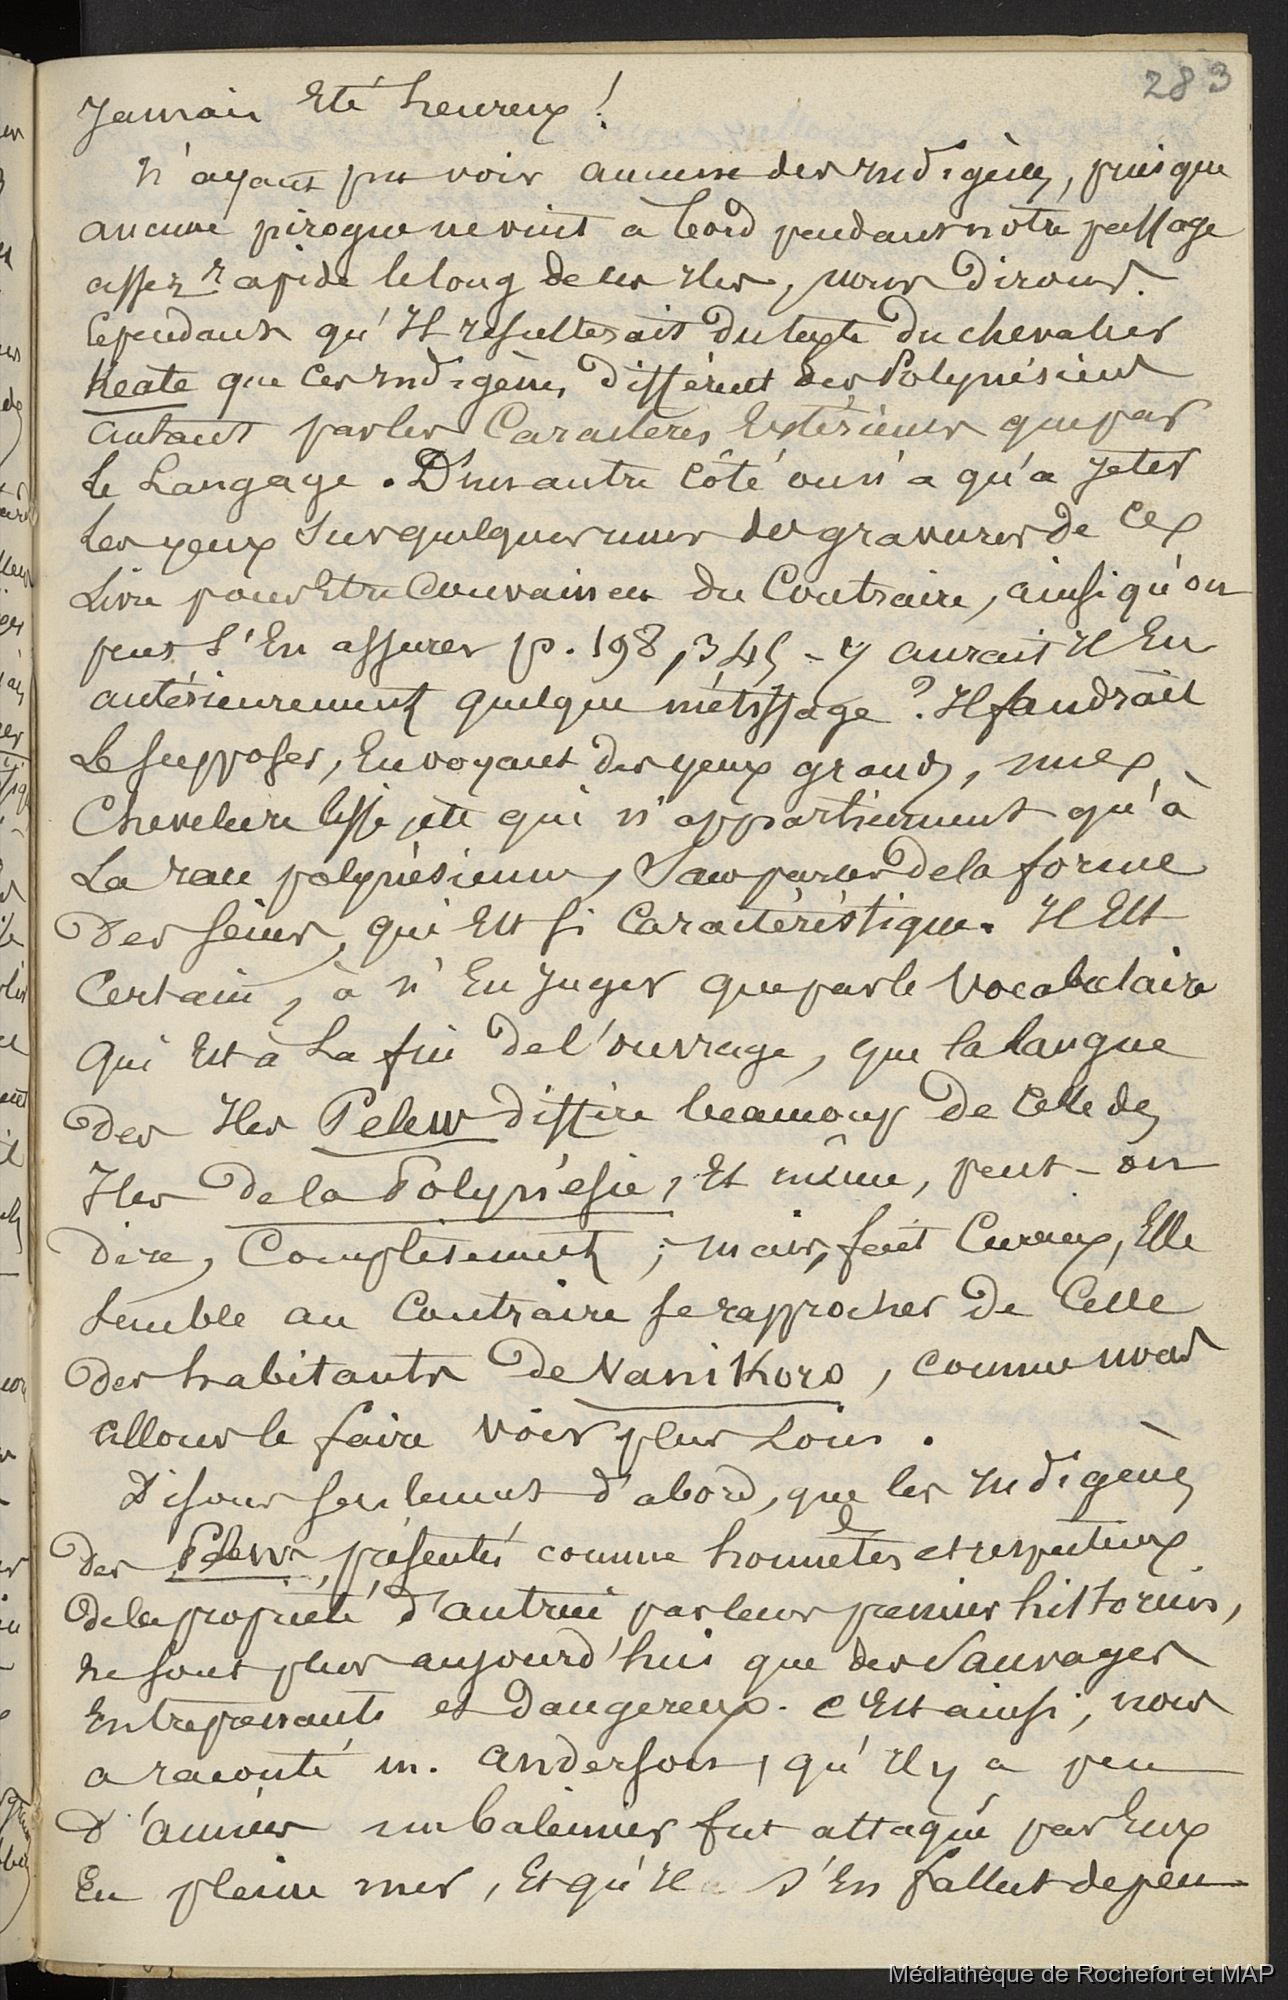 283
Jamais Eté heureux !
N'ayant pu voir aucune des Indigènes, puisque
aucune pirogue ne vint à bord pendant notre passage
assez rapide le long de ces Iles, nous dirons
cependant qu'Il résulterait du texte du chevalier
Keate que ces Indigènes diffèrent des Polynésiens
autant par les Caractères Extérieurs que par
le Langage. D'un autre côté on n'a qu'à jeter
les yeux sur quelques unes des gravures de ce
Livre pour Etre Convaincu du Contraire, ainsi qu'on
peut s'En assurer p. 198, 345 - y aurait Il Eu
antérieurement quelque métissage ? Il faudrait
le supposer, En voyant des yeux grands, une
Chevelure lisse etc qui n'appartiennent qu'à
La race polynésienne, Sans parler de la forme
Des seins, qui Est si Caractéristique. Il Est
Certain, à n'En juger que par le Vocabulaire
Qui Est à La fin de l'ouvrage, que la langue
Des Iles Pelew diffère beaucoup de Celle des
Iles de la Polynésie, Et même, peut-on
dire, Complètement ; mais, fait Curieux, Elle
semble au Contraire se rapprocher de Celle
des habitants de Vanikoro, comme nous
allons le faire voir plus Loin.
Disons seulement d'abord, que les Indigènes
des Pelew, présentés comme honnêtes et respectueux
de la propriété d'autrui par leurs premiers historiens,
ne sont plus aujourd'hui que des Sauvages
Entreprenants et Dangereux. C'Est ainsi, nous
a raconté m. Anderson, qu'Il y a peu
D'années un baleinier fut attaqué par Eux
En pleine mer, Et qu'Il s'En fallut de peu
Médiathèque de Rochefort et MAP